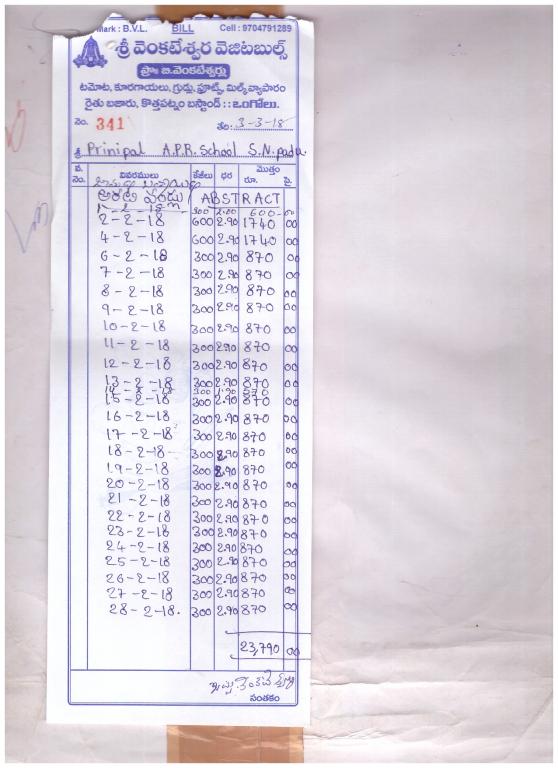 Mark : B.V.L. BILL Cell : 9704791289
శ్రీ వెంకటేశ్వర వెజిటబుల్స్
ప్రొః బి.వెంకటేశ్వర్లు
టమోట, కూరగాయలు, గ్రుడ్లు, ఫ్రూట్స్, మిల్క్ వ్యాపారం
రైతు బజారు, కొత్తపట్నం బస్టాండ్ :: ఒంగోలు.
నెం. 341 తేది. 3-3-18
శ్రీ Prinipal A.P.R. School S.N.padu
వ. నెం. వివరములు కేజీలు ధర మొత్తం రూ. పై.
అరటి పండ్లు ABSTRACT
2-2-18 600 2.90 1740 00
4-2-18 600 2.90 1740 00
6-2-18 300 2.90 870 00
7-2-18 300 2.90 870 00
8-2-18 300 2.90 870 00
9-2-18 300 2.90 870 00
10-2-18 300 2.90 870 00
11-2-18 300 2.90 870 00
12-2-18 300 2.90 870 00
13-2-18 300 2.90 870 00
15-2-18 300 2.90 870 00
16-2-18 300 2.90 870 00
17-2-18 300 2.90 870 00
18-2-18 300 2.90 870 00
19-2-18 300 2.90 870 00
20-2-18 300 2.90 870 00
21-2-18 300 2.90 870 00
22-2-18 300 2.90 870 00
23-2-18 300 2.90 870 00
24-2-18 300 2.90 870 00
25-2-18 300 2.90 870 00
26-2-18 300 2.90 870 00
27-2-18 300 2.90 870 00
28-2-18. 300 2.90 870 00
23,790 00
సంతకం